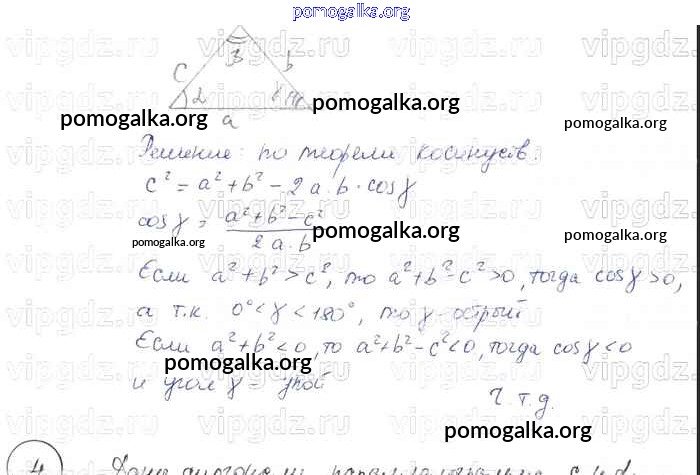 pomogalka.org
β
c b
α γ
a
pomogalka.org pomogalka.org pomogalka.org
Решение: по теореме косинусов:
c² = a² + b² - 2a·b·cosγ
cosγ = a² + b² - c² / 2a·b
pomogalka.org pomogalka.org pomogalka.org
Если a² + b² > c², то a² + b² - c² > 0, тогда cosγ > 0,
а т.к. 0° < γ < 180°, то γ - острый
pomogalka.org
Если a² + b² < 0, то a² + b² - c² < 0, тогда cosγ < 0
pomogalka.org
и угол γ - тупой
Ч.т.д.
pomogalka.org
4
vipgdz.ru vipgdz.ru vipgdz.ru